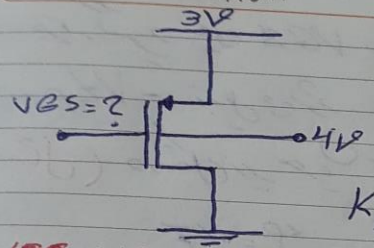 3V
VGS=?
4V
K